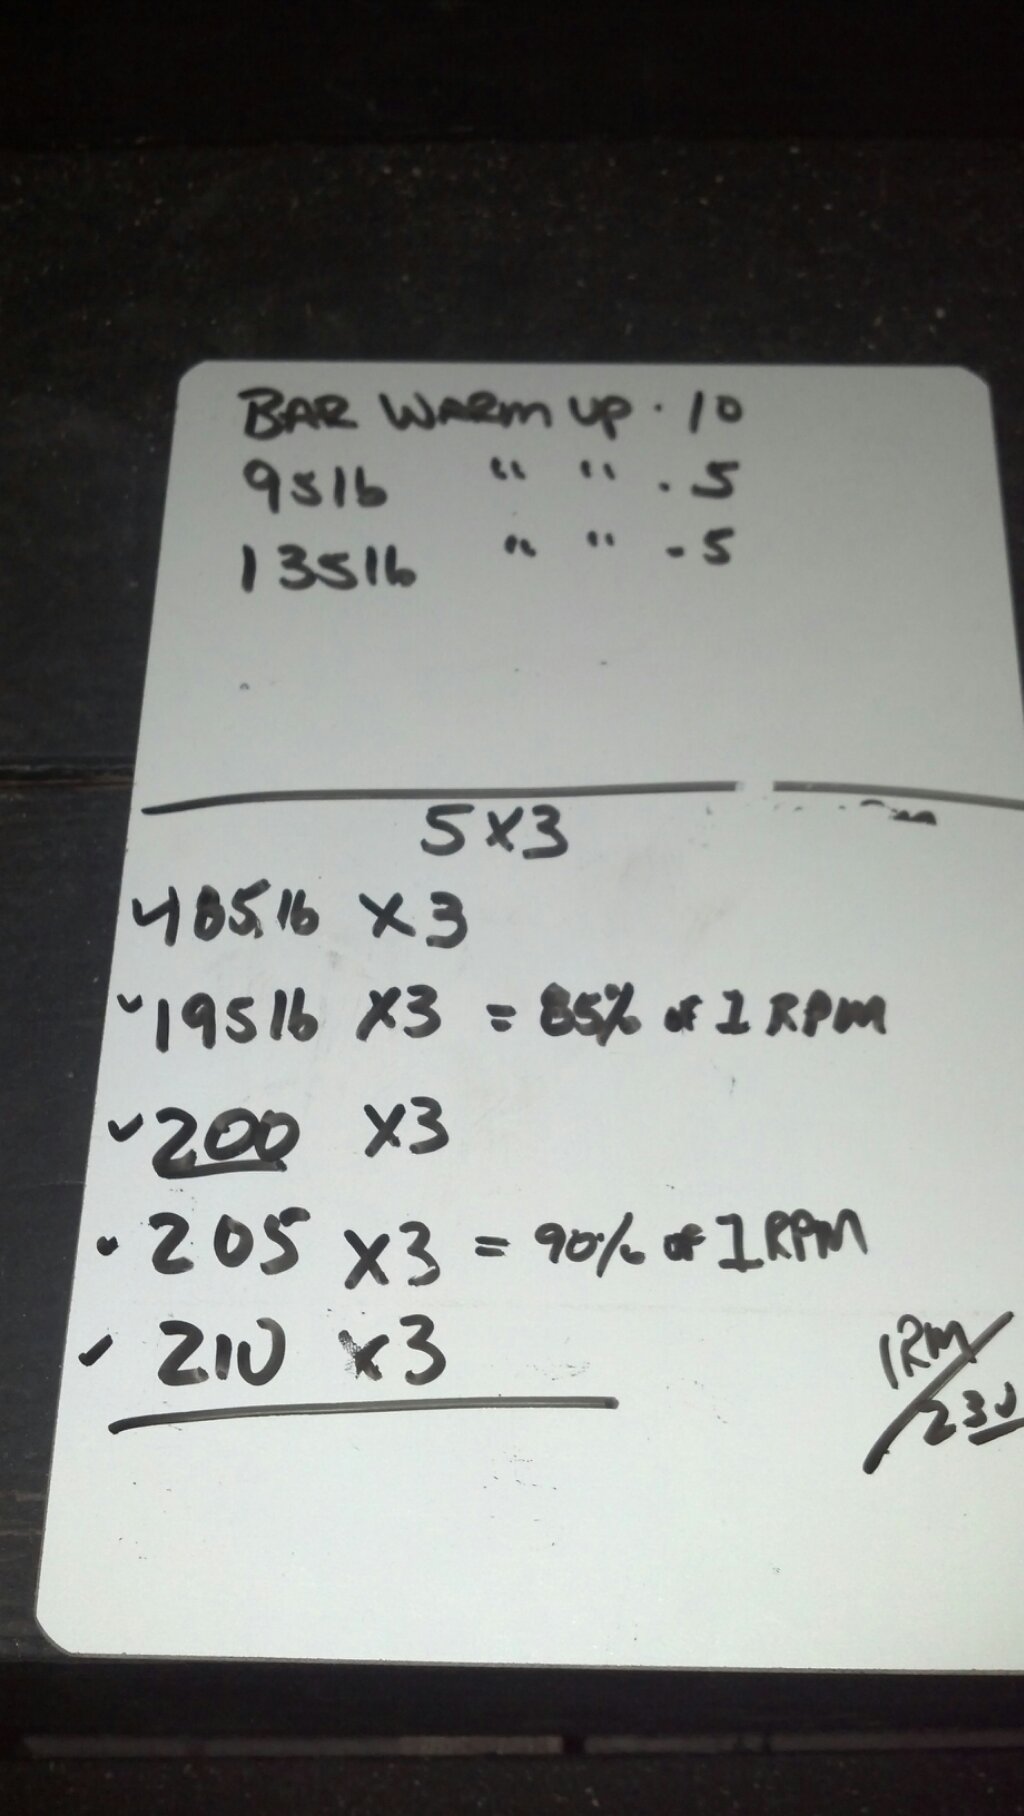 BAR WARM UP . 10
95lb " " . 5
135lb " " - 5
5 X 3
185lb X 3
195lb X3 = 85% of 1 RPM
200 X3
205 X3 = 90% of 1 RPM
210 x3
1RM/230